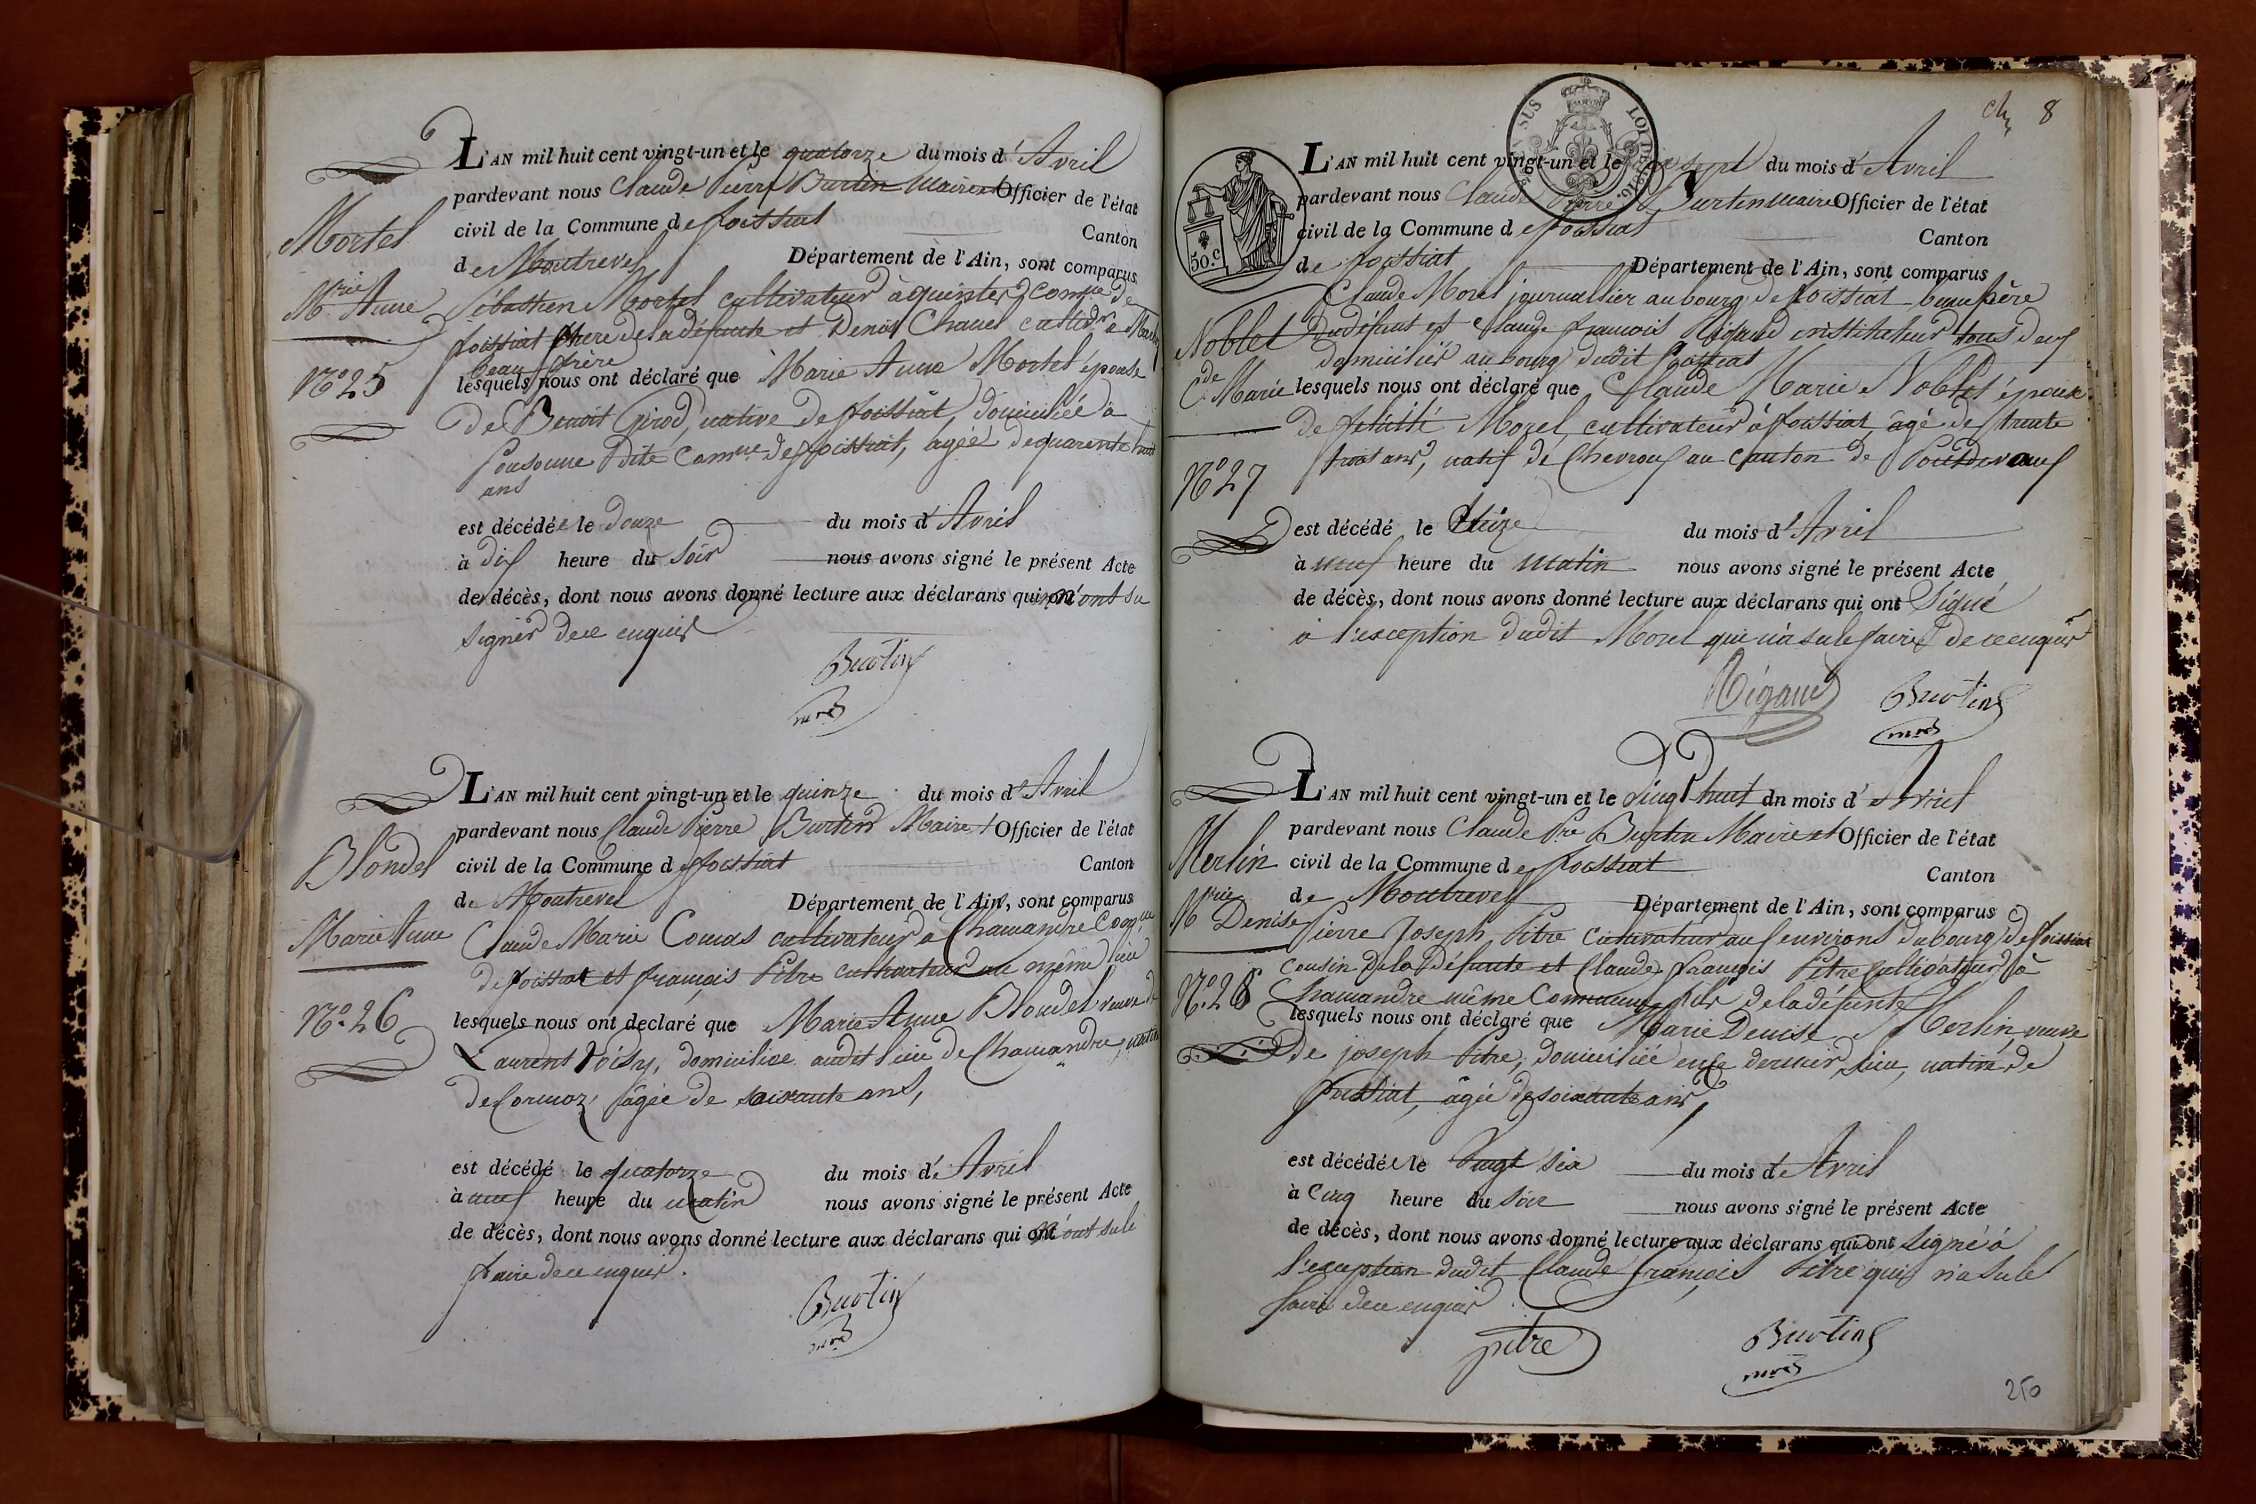 L'AN mil huit cent vingt-un et le quatorze du mois d'Avril
pardevant nous Claude Pierre Burtin Maire et Officier de l'état
civil de la Commune de foissiat Canton
de Montrevel Département de l'Ain, sont comparus
Mortel
Mrie Anne
N° 25
Sébastien Mortel cultivateur à quinte comue de
foissiat frère de la défunte et Denis Chanel cultiv.r à
beau frère
lesquels nous ont déclaré que Marie Anne Mortel épouse
de Benoit Girod, native de foissiat, domiciliée à
dite Comue de foissiat, agée de quarente huit
ans
est décédée le Douze du mois d'Avril
à dix heure du soir nous avons signé le présent Acte
de décès, dont nous avons donné lecture aux déclarans qui n'ont su
signer de ce enquis
Burtin
mre
L'AN mil huit cent vingt-un et le quinze du mois d'Avril
pardevant nous Claude Pierre Burtin Maire et Officier de l'état
civil de la Commune de foissiat Canton
de Montrevel Département de l'Ain, sont comparus
Blondel
Marie Anne
N° 26
Claude Marie Comas cultivateur à Chamandre Comue
de foissiat et françois Pitre cultivateur au même lieu
lesquels nous ont declaré que Marie Anne Blondel veuve de
Laurent Voisy, domiciliée audit lieu de Chamandre, native
de Cormoz, âgée de soixante ans,
est décédé le quatorze du mois d'Avril
à neuf heure du matin nous avons signé le présent Acte
de décès, dont nous avons donné lecture aux déclarans qui n'ont su le
faire de ce enquis.
Burtin
mre
8
LOI DE 1816
50.c
L'AN mil huit cent vingt-un et le sept du mois d'Avril
pardevant nous Claude Pierre Burtin Maire Officier de l'état
civil de la Commune de foissiat Canton
de foissiat Département de l'Ain, sont comparus
Noblet
Cde Marie
N° 27
Claude Morel journallier au bourg de foissiat beau père
du défunt et Claude françois Rigaud instituteur tous deux
domiciliés au bourg dudit foissiat
lesquels nous ont déclaré que Claude Marie Noblet époux
de félicité Morel, cultivateur à foissiat, âgé de trente
trois ans, natif de Chevroux au canton de Pontdevaux
est décédé le Seize du mois d'Avril
à neuf heure du matin nous avons signé le présent Acte
de décès, dont nous avons donné lecture aux déclarans qui ont Signé
à l'exception dudit Morel qui n'a su le faire de ce enquis
Rigaud
Burtin
mre
L'AN mil huit cent vingt-un et le Vingt huit du mois d'Avril
pardevant nous Claude Pre Burtin Maire et Officier de l'état
civil de la Commune de foissiat Canton
de Montrevel Département de l'Ain, sont comparus
Merlin
Mrie Denise
N° 28
Pierre Joseph Pitre Cultivateur aux environs du bourg de foissiat
cousin de la défunte et Claude françois Pitre Cultivateur à
Chamandre même Commune, fils de la défunte
lesquels nous ont déclaré que Marie Denise Merlin, veuve
de joseph Pitre, domiciliée en ce dernier lieu, native de
foissiat, âgée de soixante ans,
est décédée le Vingt Six du mois d'Avril
à Cinq heure du soir nous avons signé le présent Acte
de décès, dont nous avons donné lecture aux déclarans qui ont signé à
l'exception dudit Claude françois Pitre qui n'a su le
faire de ce enquis
pitre
Burtin
mre
250